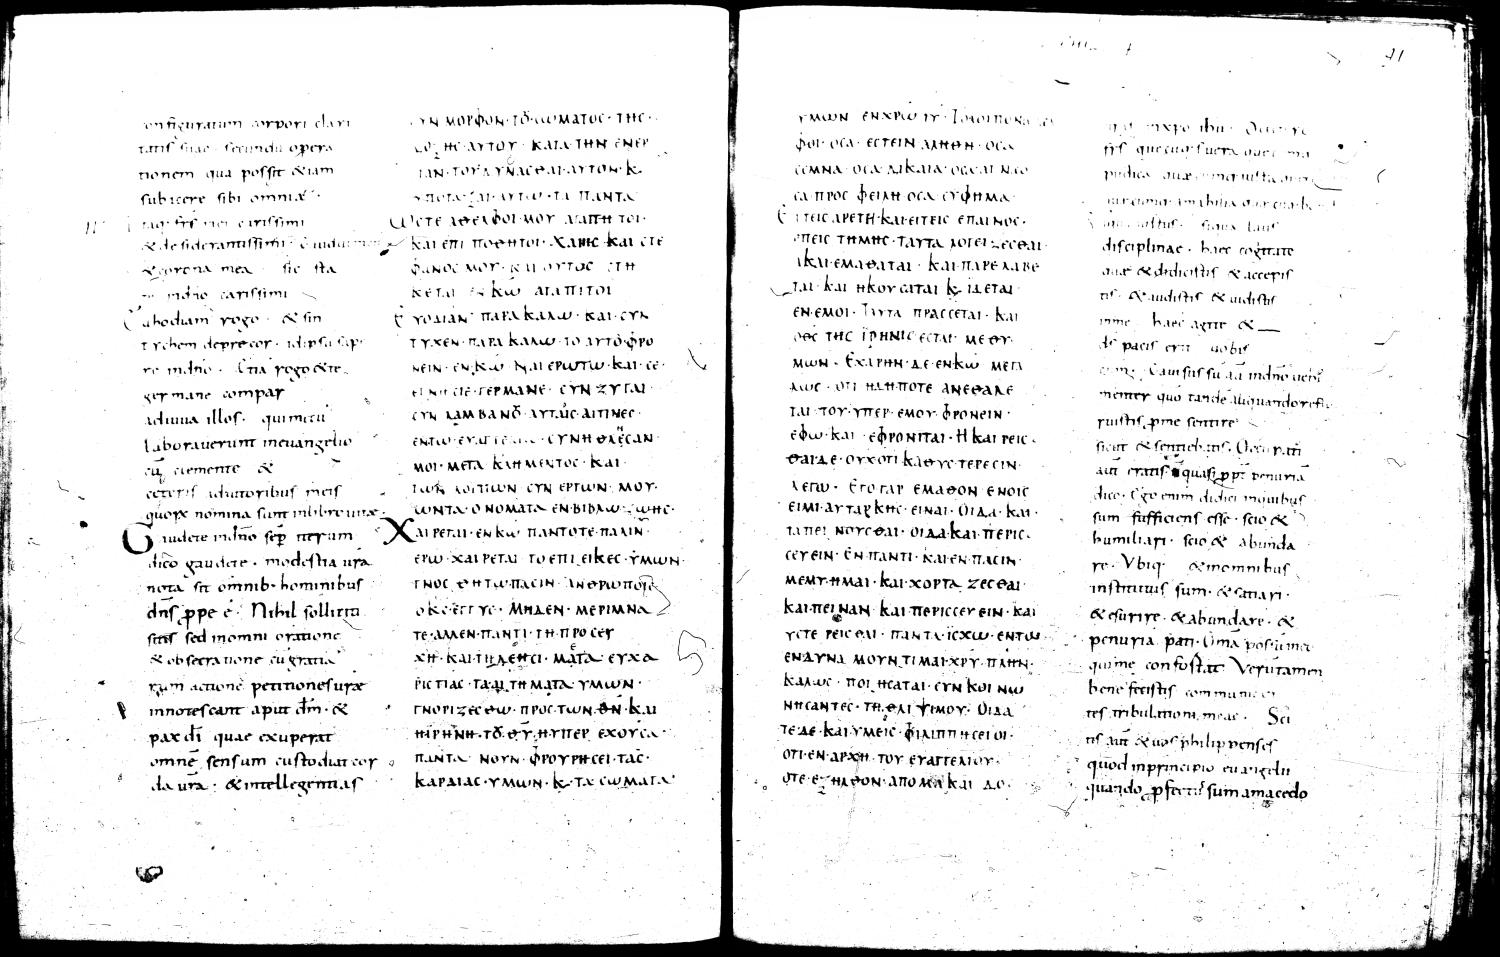 configuratum corpori clari
tatis suae · secundū opera
tionem qua possit &iam
subicere sibi omnia ·
itaq· frs mei carissimi
& desiderantissimi
& corona mea · sic sta
te indno carissimi
rogo · & sin
tychem deprecor · id ipsū sap
re indno · &iā rogo & te
germane compar
adiuua illos · quimecū
laborauerunt ineuangelio
cū clemente &
ceteris adiutoribus meis
quorum nomina sunt inlibro uitae ·
Gaudete indnō sēp iterum
dico gaudete · modestia ūra
nota sit omnib· hominibus
dns ꝓpe ē · Nihil solliciti
sitis sed inomni oratione
& obsecratione cū gratia
rum actione petitiones uræ
innotescant aput dm̄ · &
pax dī quae exuperat
omnē sensum custodiat cor
da ūra · & intellegentias
CΥΝ ΜΟΡΦΟΝ · ΤΟ · CΩΜΑΤΟC · ΤΗC ·
ΔΟΞΗC · ΑΥΤΟΥ · ΚΑΤΑ · ΤΗΝ ΕΝΕΡ
ΓΙΑΝ · ΤΟΥ ΔΥΝΑCΘΑΙ · ΑΥΤΟΝ · Κ
ΥΠΟΤΑΞΑΙ · ΑΥΤΩ · ΤΑ ΠΑΝΤΑ
ΩCΤΕ ΑΘΕΛΦΟΙ · ΜΟΥ ΑΓΑΠΗΤΟΙ ·
ΚΑΙ ΕΠΙ ΠΟΘΗΤΟΙ · ΧΑΡΙC · ΚΑΙ CΤΕ
ΦΑΝΟC ΜΟΥ · ΚΑΙ ΟΥΤΟC CΤΗ
ΚΕΤΑΙ ΕΝ ΚΩ ΑΓΑΠΙΤΟΙ
ΕΥΟΔΙΑΝ ΠΑΡΑΚΑΛΩ · ΚΑΙ · CΥΝ
ΤΥΧΕΝ · ΠΑΡΑΚΑΛΩ · ΤΟ ΑΥΤΟ ΦΡΟ
ΝΕΙΝ · ΕΝ ΚΩ ΝΑΙ ΕΡΩΤΩ · ΚΑΙ · CΕ ·
ΓΕΡΜΑΝΕ · CΥΝ ΖΥΓΑΙ ·
CΥΝ ΛΑΜΒΑΝΟ · ΑΥΤΑΙC · ΑΙΤΙΝΕC ·
ΕΝ ΤΩ · ΕΥΑΓΓΕΛΙΩ · CΥΝΗΘΛΕCΑΝ
ΜΟΙ · ΜΕΤΑ ΚΛΗΜΕΝΤΟC · ΚΑΙ ·
ΤΩΝ ΛΟΙΠΩΝ CΥΝ ΕΡΓΩΝ · ΜΟΥ ·
ΩΝ ΤΑ · ΟΝΟΜΑΤΑ · ΕΝ ΒΙΒΛΩ · ΖΩΗC ·
ΧΑΙΡΕΤΑΙ · ΕΝ ΚΩ ΠΑΝΤΟΤΕ · ΠΑΛΙΝ ·
ΕΡΩ · ΧΑΙΡΕΤΑΙ · ΤΟ ΕΠΙΕΙΚΕC · ΥΜΩΝ ·
ΓΝΟC · ΘΗΤΩ · ΠΑCΙΝ · ΑΝΘΡΩΠΟΙC
Ο ΚC · ΕΓΓΥC · ΜΗΔΕΝ · ΜΕΡΙΜΝΑ
ΤΕ · ΑΛΛΕΝ · ΠΑΝΤΙ · ΤΗ · ΠΡΟCΕΥ
ΧΗ · ΚΑΙ · ΤΗ ΔΕΗCΙ · ΜΕΤΑ ΕΥΧΑ
ΡΙCΤΙΑC · ΤΑ ΑΙΤΗΜΑΤΑ · ΥΜΩΝ ·
ΓΝΟΡΙΖΕCΘΩ · ΠΡΟC · ΤΩΝ · ΘΝ · ΚΑΙ
ΗΙΡΗΝΗ · ΤΟ · ΘΥ · Η ΥΠΕΡ ΕΧΟΥCΑ ·
ΠΑΝΤΑ ΝΟΥΝ · ΦΡΟΥΡΗCΕΙ · ΤΑC ·
ΚΑΡΔΙΑC · ΥΜΩΝ · Κ · ΤΑ CΩΜΑΤΑ ·
41
ΥΜΩΝ ΕΝ ΧΡΩ ΙΥ · ΤΟΛΟΙΠΟΝ
ΦΟΙ · ΟCΑ · ΕCΤΕΙΝ ΑΛΗΘΗ · ΟCΑ
CΕΜΝΑ · ΟCΑ ΔΙΚΑΙΑ · ΟCΑ ΑΓΝ
CΑ ΠΡΟC ΦΕΙΛΗ ΟCΑ ΕΥΦΗΜΑ ·
ΕΙΤΕΙC ΑΡΕΤΗ · ΚΑΙ · ΕΙΤΕΙC ΕΠΑΙΝΟC ·
ΕΠΕΙC ΤΗΜΗC · ΤΑΥΤΑ ΛΟΓΕΙΖΕCΘΑΙ ·
Α ΚΑΙ · ΕΜΑΘΑΤΑΙ · ΚΑΙ · ΠΑΡΕΛΑΒΕ
ΤΑΙ · ΚΑΙ ΗΚΟΥCΑΤΑΙ Κ ΙΔΕΤΑΙ ·
ΕΝ · ΕΜΟΙ · ΤΑΥΤΑ ΠΡΑCCΕΤΑΙ · ΚΑΙ
Ο ΘC ΤΗC ΙΡΗΝΙC ΕCΤΑΙ · ΜΕΘΥ ·
ΜΩΝ · ΕΧΑΡΗΝ · ΔΕ · ΕΝ ΚΩ ΜΕΓΑ
ΛΩC · ΟΤΙ ΗΔΗ ΠΟΤΕ ΑΝΕΘΑΛΕ
ΤΑΙ · ΤΟΥ · ΥΠΕΡ · ΕΜΟΥ · ΦΡΟΝΕΙΝ ·
ΕΦΩ · ΚΑΙ · ΕΦΡΟΝΙΤΑΙ · Η ΚΑΙΡΕΙC ·
ΘΑΙ · ΔΕ · ΟΥΧ ΟΤΙ ΚΑΘΥCΤΕΡΕCΙΝ ·
ΛΕΓΩ · ΕΓΟ ΓΑΡ ΕΜΑΘΟΝ ΕΝ ΟΙC
ΕΙΜΙ · ΑΥΤΑΡΚΗC · ΕΙΝΑΙ · ΟΙΔΑ · ΚΑΙ ·
ΤΑΠΕΙΝΟΥCΘΑΙ · ΟΙΔΑ · ΚΑΙ · ΠΕΡΙC ·
CΕΥΕΙΝ · ΕΝ ΠΑΝΤΙ · ΚΑΙ · ΕΝ · ΠΑCΙΝ ·
ΜΕΜΥΗΜΑΙ · ΚΑΙ · ΧΟΡΤΑΖΕCΘΑΙ ·
ΚΑΙ · ΠΕΙΝΑΝ ΚΑΙ ΠΕΡΙCCΕΥΕΙΝ · ΚΑΙ
ΥCΤΕΡΕΙCΘΑΙ · ΠΑΝΤΑ · ΙCΧΩ · ΕΝ ΤΩ
ΕΝΔΥΝΑΜΟΥΝΤΙ ΜΑΙ · ΧΡΥ · ΠΛΗΝ ·
ΚΑΛΩC · ΠΟΙΗCΑΤΑΙ · CΥΝ ΚΟΙΝΩ
ΝΗCΑΝΤΕC · ΤΗ ΘΛΙΨΙ ΜΟΥ · ΟΙΔΑ
ΤΕ · ΔΕ · ΚΑΙ · ΥΜΕΙC · ΦΙΛΙΠΠΗCΕΙΟΙ ·
ΟΤΙ · ΕΝ · ΑΡΧΗ · ΤΟΥ ΕΥΑΓΓΕΛΙΟΥ ·
ΟΤΕ · ΕΞΗΛΘΟΝ · ΑΠΟ ΜΑΚΑΙΔΟ ·
inxpo ihu ·
frs quecūq· suera
pudica quae
amabilia
disciplinae · haec cogitate
quae & didicistis & accepis
tis · & audistis & uidistis
inme haec agite &
ds pacis erit uobis
cum · Gauisus sū aū indno uehe
menter quō tande aliquando refl
ruistis ꝓme sentire
sicut & sentiebatis · Occupati
aūt eratis quasi ꝓpt penuriā
dico · Ego enim didici inquibus
sum sufficiens esse · scio &
humiliari · scio & abunda
re · Vbiq· & inomnibus
institutus sum · & satiari ·
& esurire · & abundare · &
penuria pati · Omā possū ineo
quime confortat Verutamen
bene fecistis communica
tes tribulationi meae · Sci
tis aūt & uos philippenses
quod inprincipio euangelii
quando ꝓfectus sum amacedo